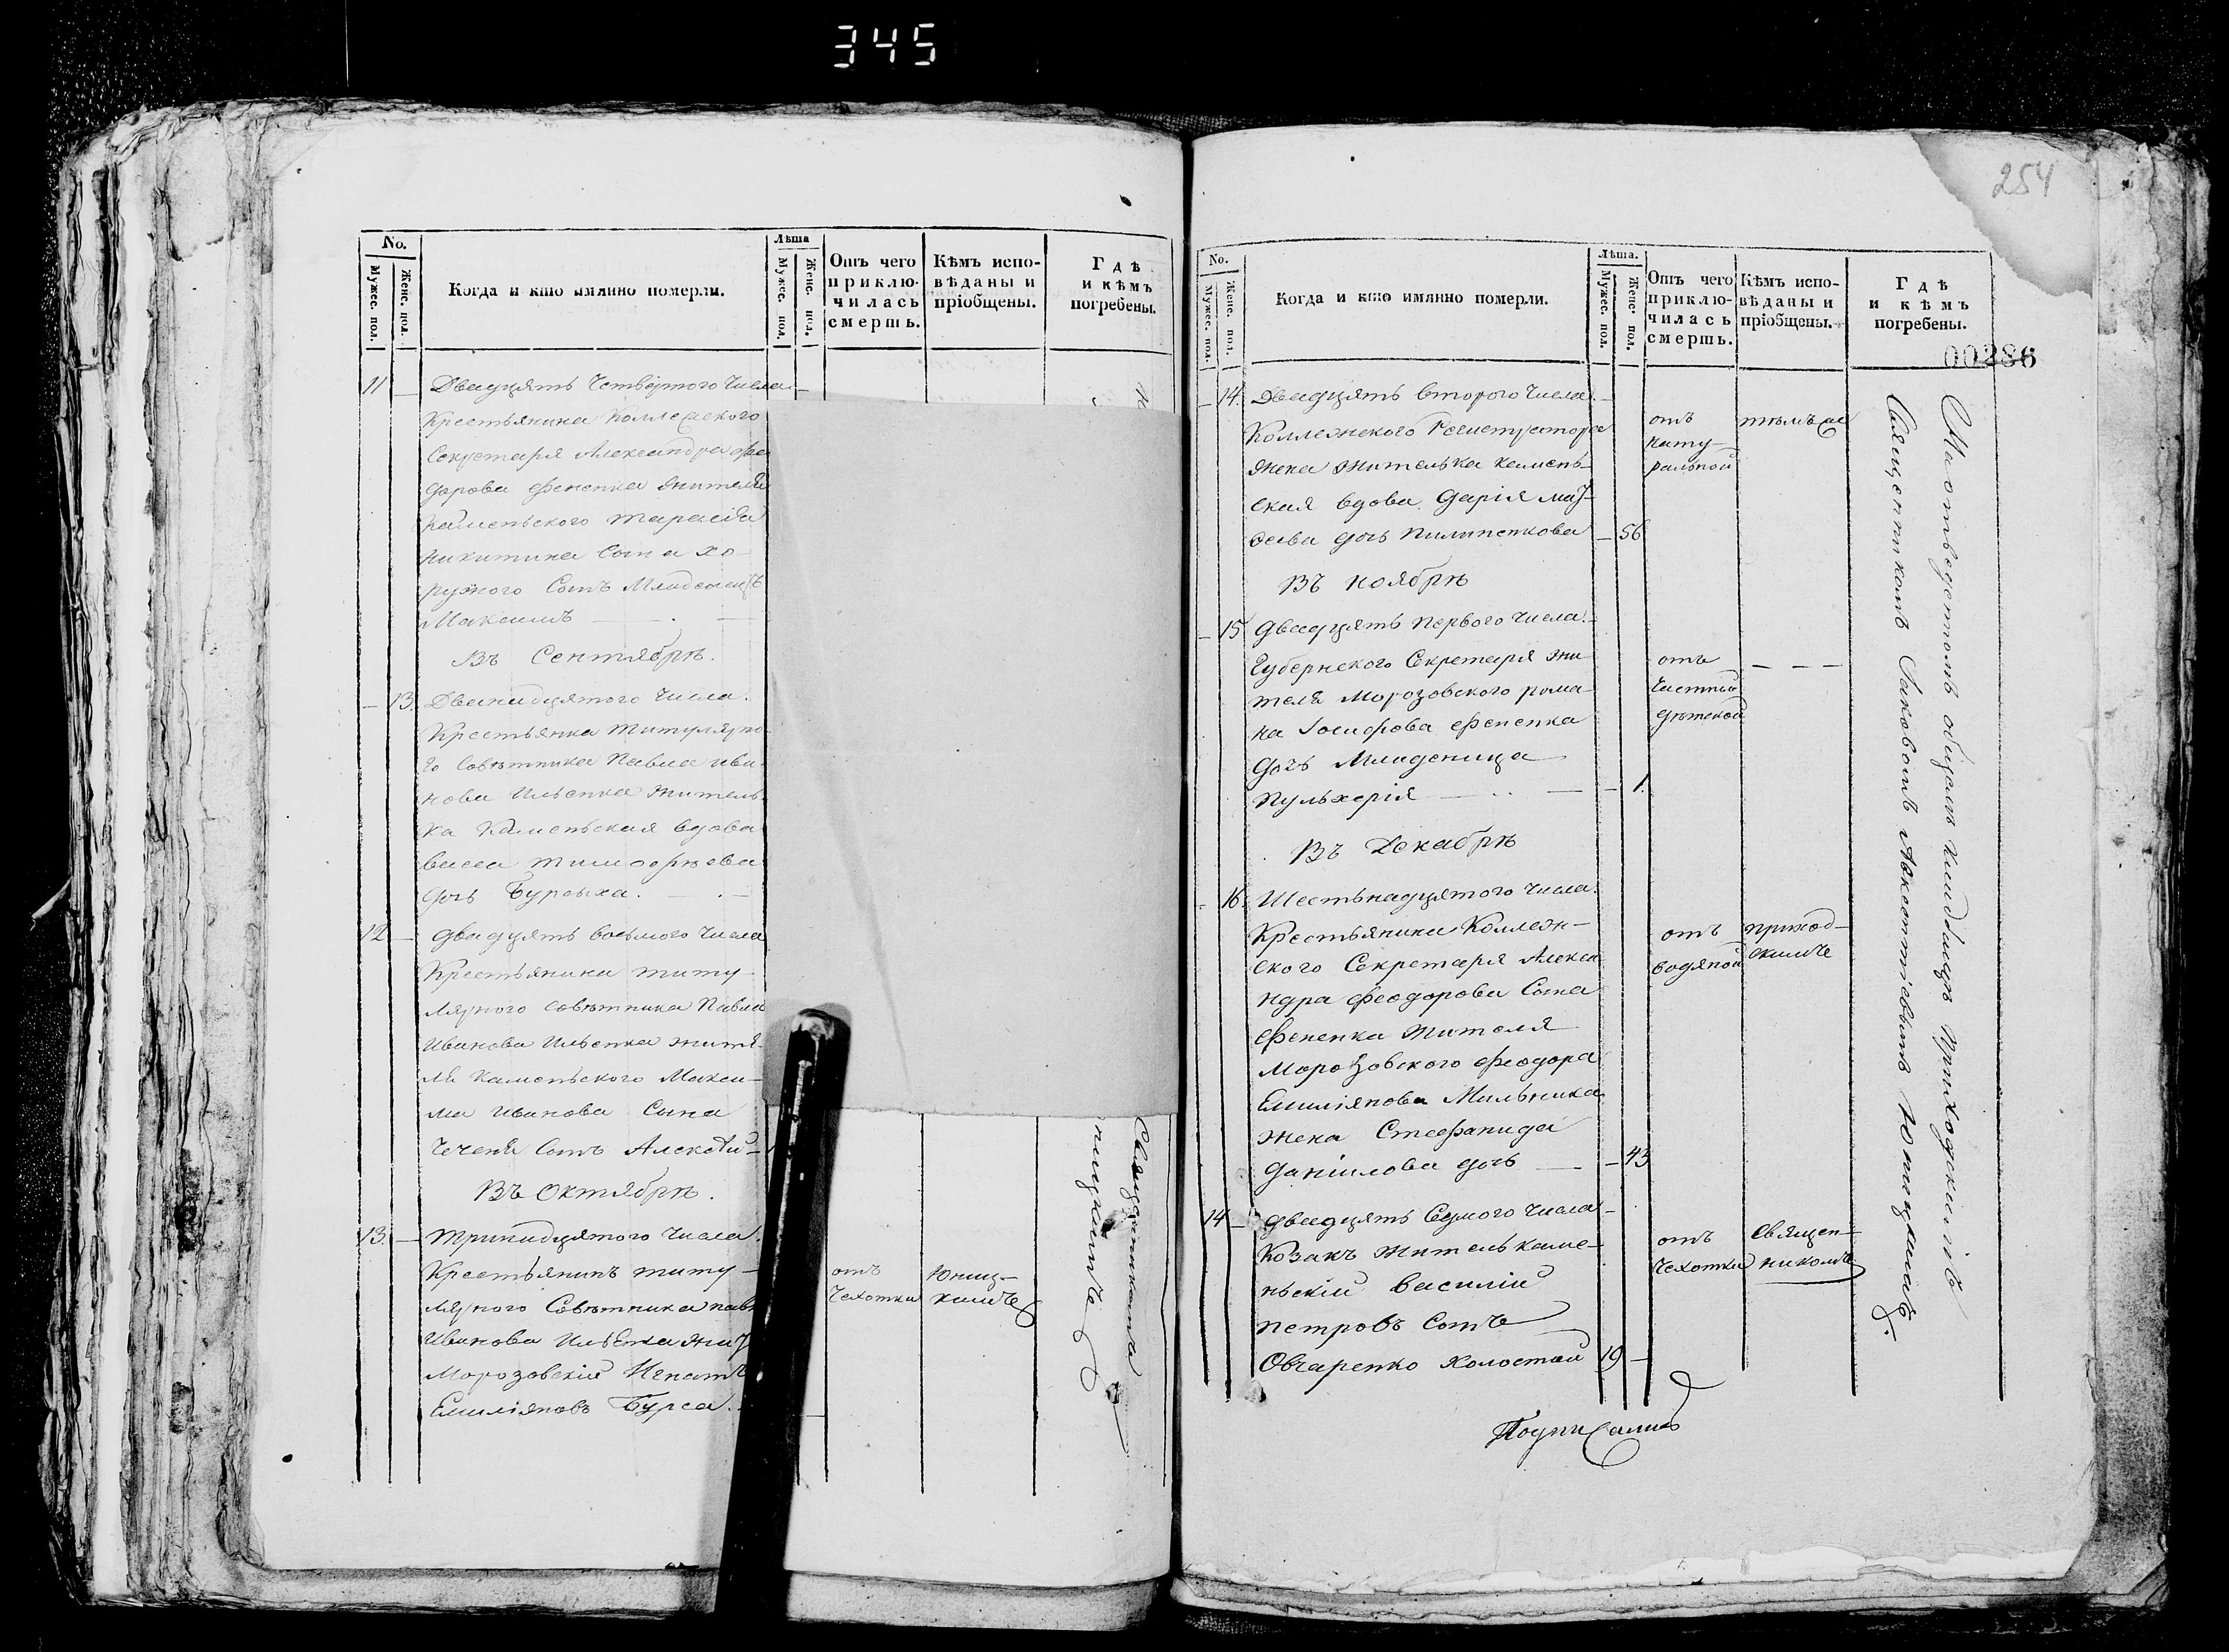 345
No.
Мужес. пол.
Женс. пол.
Когда и кто имянно померли.
Лѣта
Мужес. пол.
Женс. пол.
Отъ чего
приклю-
чилась
смерть.
Кѣмъ испо-
вѣданы и
пріобщены.
Гдѣ
и кѣмъ
погребены.
11 — Двадцять Четвертого Числа —
Крестьянина Коллежского
Секретаря Александра Фео
дорова Фененка жителя
Каменьского Тарасія
Никитина Сына Хо-
ружого Сынъ Младенецъ
Максимъ —
Въ Сентябрѣ.
— 13. Дванадцятого Числа.
Крестьянка Титулярно-
го Совѣтника Павла Ива
нова Ильенка житель
ка Каменьская вдова
Васса Тимофѣева
дочь Бурсыха. —
12 — двадцять восьмого Числа
Крестьянина титу-
лярного совѣтника Павла
Иванова Ильенка жите-
ля Каменьского Макси-
ма Иванова Сына
Чечеля Сынъ Алексѣй —
Въ Октябрѣ.
13. — Тринадцятого Числа.
Крестьянинъ титу-
лярного Совѣтника пав
Иванова Ильенка жит
Морозовскій Игнатъ
Емиліяновъ Бурса.
отъ
чахотки
Юниц-
кимъ
Священникомъ
ницкимъ
254
No.
Мужес. пол.
Женс. пол.
Когда и кто имянно померли.
Лѣта.
Мужес. пол.
Женс. пол.
Отъ чего
приклю-
чилась
смерть.
Кѣмъ испо-
вѣданы и
пріобщены.
Гдѣ
и кѣмъ
погребены.
00286
— 14. Двадцять второго Числа. —
Коллежского Регистратора
жена жителька камень-
ская вдова Дарія
дочь Пилипенкова — 56
отъ
нату-
ральной
тѣмъ же
Въ ноябрѣ
— 15 двадцять первого числа. —
Губернского Секретаря жи
теля Морозовского рома
на Іосифова Фененка
дочь Младеница
Пульхерія — — 1.
отъ
— — —
дѣтской
Въ Декабрѣ
— 16. Шестьнадцятого числа.
Крестьянина Коллеж-
ского Секретаря Алекса
ндра Феодорова Сына
Фененка жителя
Морозовского Феодора
Емиліянова Мильника
жена Стефанида
даніилова дочь — — 43
отъ
водяной
приход-
скимъ
14 — двадцять Седмого числа —
Козакъ житель каме-
ньскій Василій
петровъ Сынъ
Овчаренко холостой 19 —
отъ
Чахотки
Священ-
никомъ
На отведенномъ общемъ кладбищѣ приходскимъ
Священникомъ Іаковомъ Авксентіевымъ Юницкимъ.